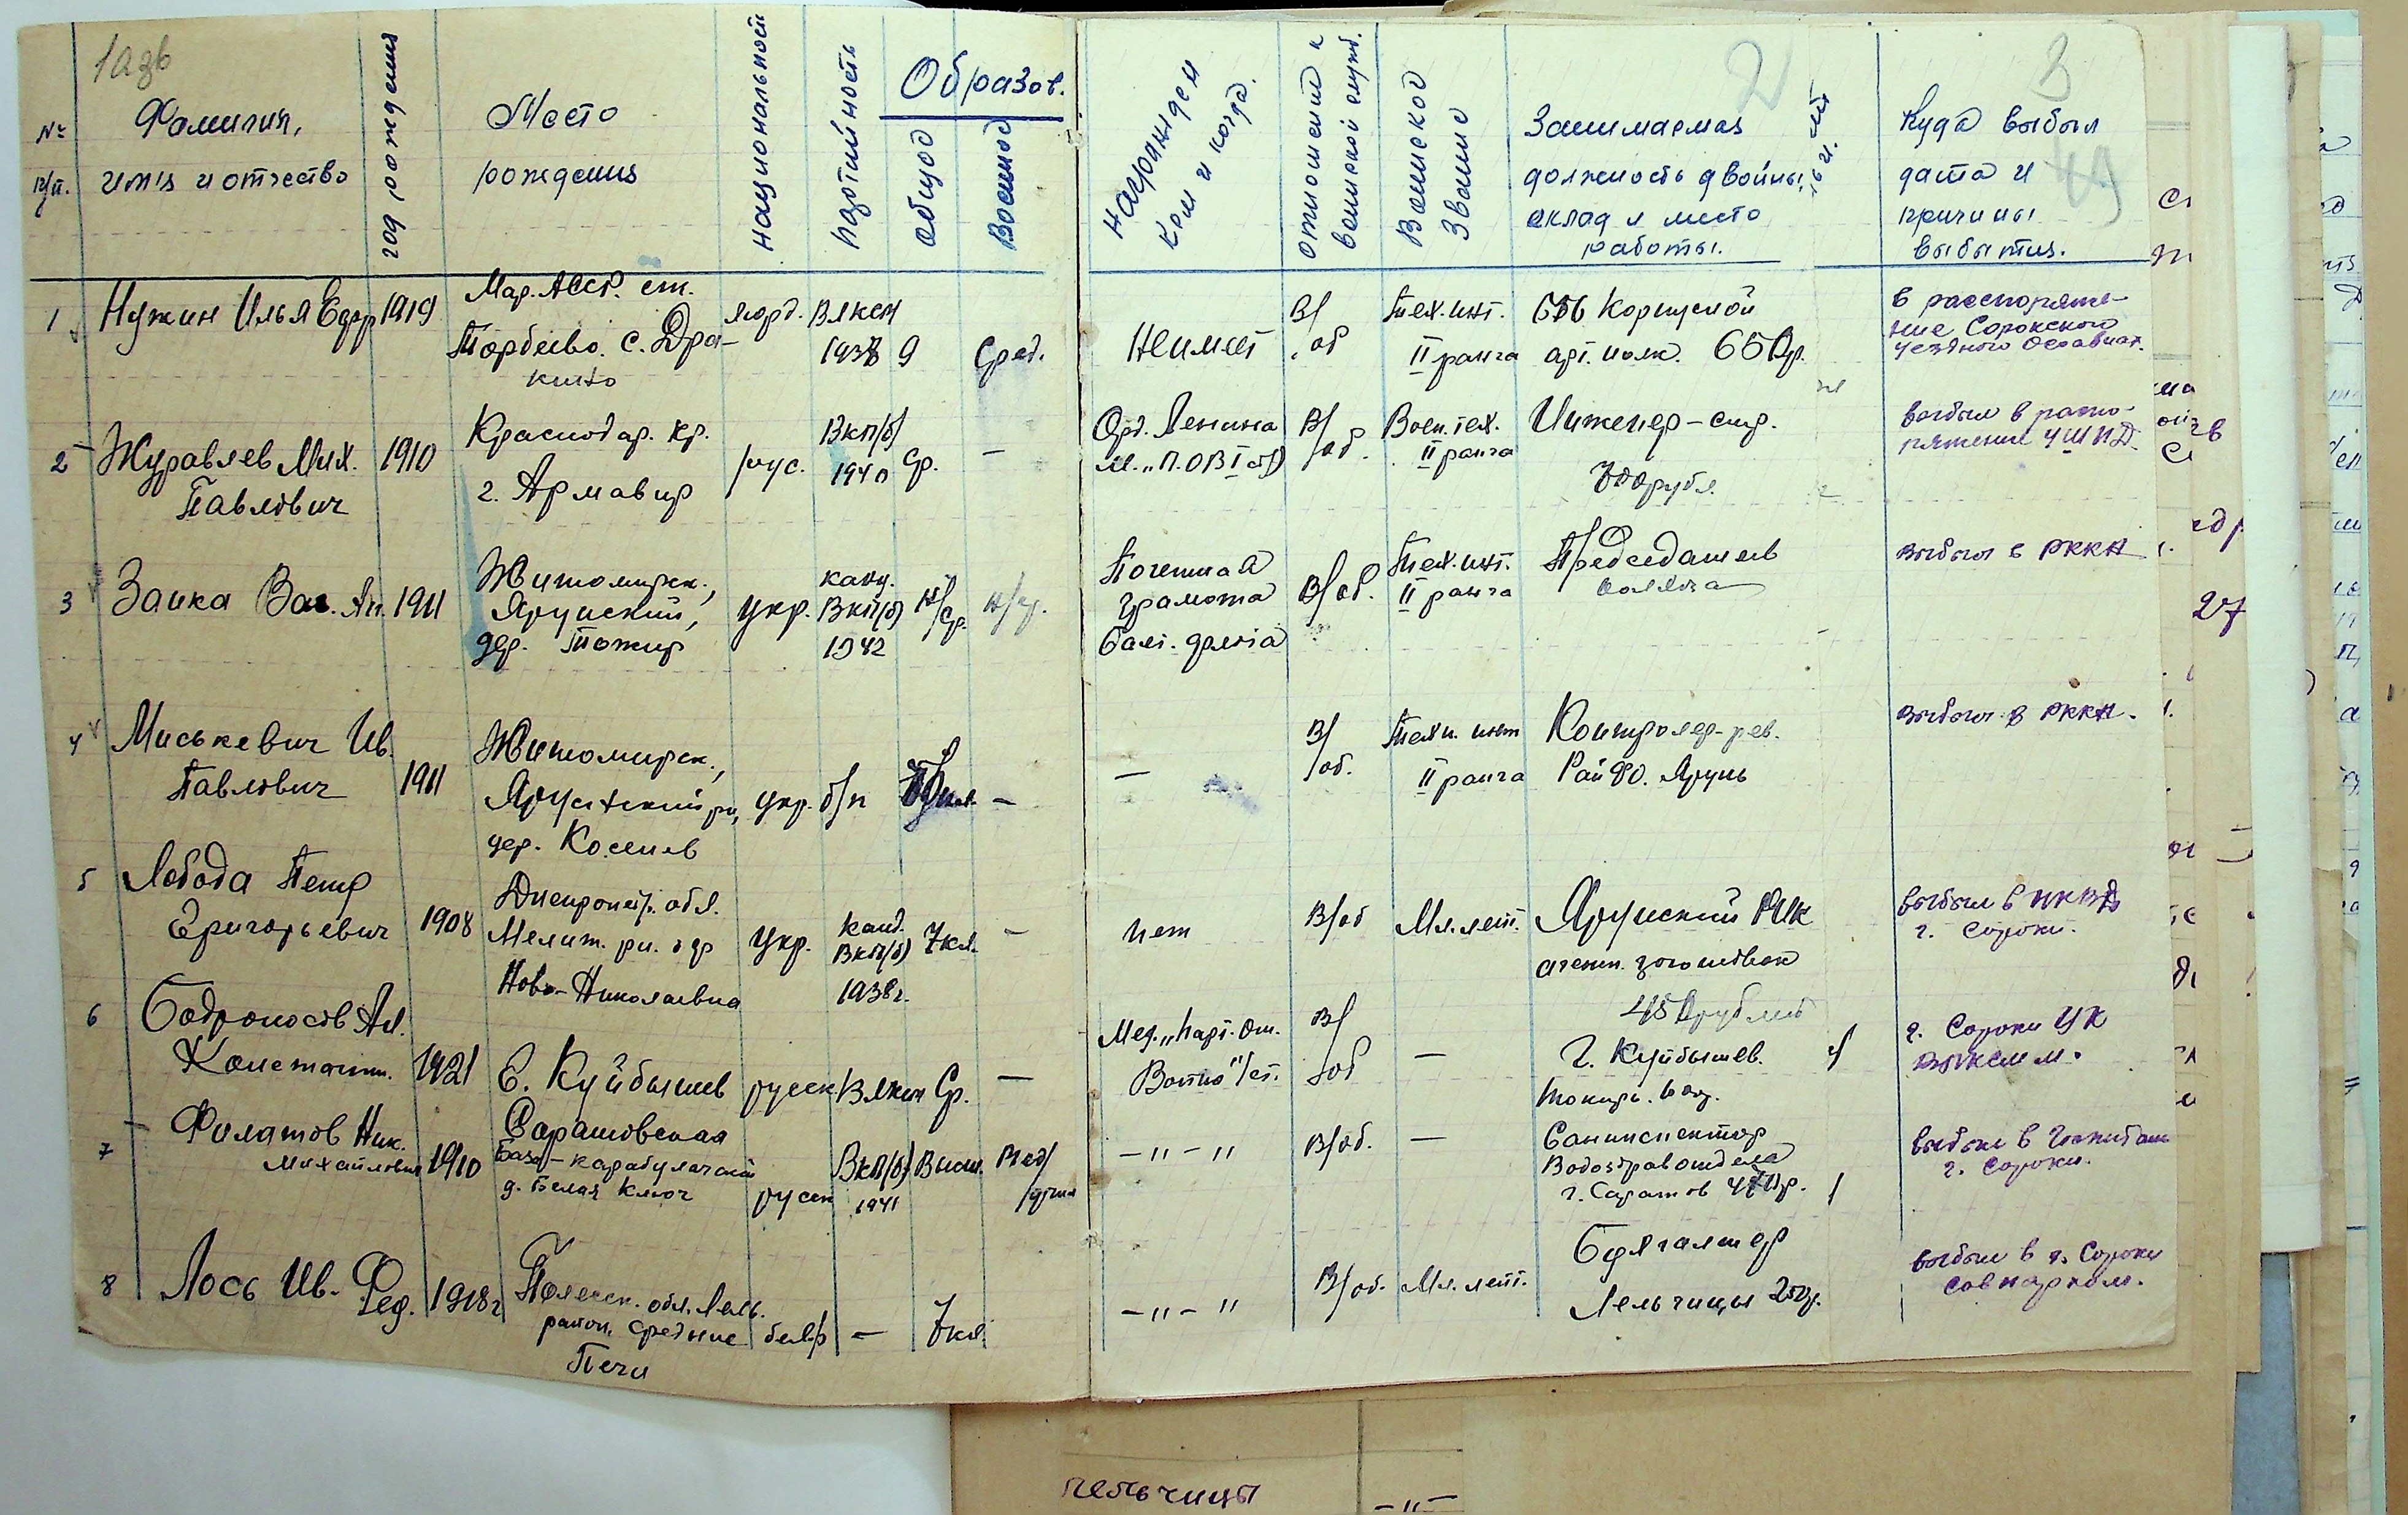 1 азв
№ п/п.
Фамилия,
имя и отчество
год рождения
Место
рождения
национальной
партийность
Образов.
общоо
Военноо
Награжден
кем и когда.
отношение к
воинской служб.
Воинскоо
Звание
Занимаемая
должность двойны,
оклад и место
работы.
2
Куда выбыл
дата и
причины
выбытия.
3
1 Нужин Илья Ефр 1919
Мар. АССР. ст.
Торбеево. с. Дра-
кино
морд. Влксм
1938 9 Сред.
Не имеет
В/
об
Тех. инт.
II ранга
656 Корпусной
арт. полк. 650р.
в распоряже-
ние Сорокского
уездного Осоавиах.
2 Журавлев Мих.
Павлович
1910
Краснодар. кр.
г. Армавир
рус.
Вкп/б/
1940
ср. —
Орд. Ленина
м. „П.ОВ I ст)
В/
об.
Воен. тех.
II ранга
Инженер-стр.
700 рубл.
выбыл в распо-
ряжение УШПД.
3 Заика Вас. Ан. 1911
Житомирск.,
Ярунский,
дер. Тожир
укр.
канд.
Вкп(б)
1942
н/ср. н/ср.
Почетная
грамота
Балт. флота
В/об.
Тех. инт.
II ранга
Председатель
колхоза
Выбыл в РККА
4 Миськевич Ив.
Павлович
1911
Житомирск.,
Ярунский рн,
дер. Косенив
укр. б/п —
—
В/
об.
Техн. инт
II ранга
Контролер-рев.
РайФО. Ярунь
Выбыл в РККА.
5 Лобода Петр
Григорьевич
1908
Днепропетр. обл.
Мелит. рн.
Ново-Николаевка
укр.
канд.
Вкп(б)
1938г.
7кл. —
нет
В/об
Мл. лейт.
Ярунский РИК
агент. заготовок
450 рублей
выбыл в НКВД
г. Сороки.
6 Бодроносов Ал.
Констант.
1921
С. Куйбышев
русск Влксм Ср. —
Мед. „парт. От.
Войны" I ст.
В/
об
—
г. Куйбышев.
токарь.
г. Сороки УК
ВЛКСМ м.
7 Филатов Ник.
Михайлович
1910
Саратовская
База-карабулакский
д. Белая Ключ
русск
Вкп(б)
1941
Высш. Мед/
— „ — „
В/об.
—
Санинспектор
Водоздравотдела
г. Саратов 470р.
выбыл в Госпиталь
г. Сороки.
8 Лось Ив. Фед. 1918г
Полесск. обл. Лель.
район, Средние
Печи
бел/р — 7кл.
— „ — „
В/об.
Мл. лейт.
Бухгалтер
Лельчицы 250р.
выбыл в г. Сороки
совнарком.
27
лельчицы
— „ —